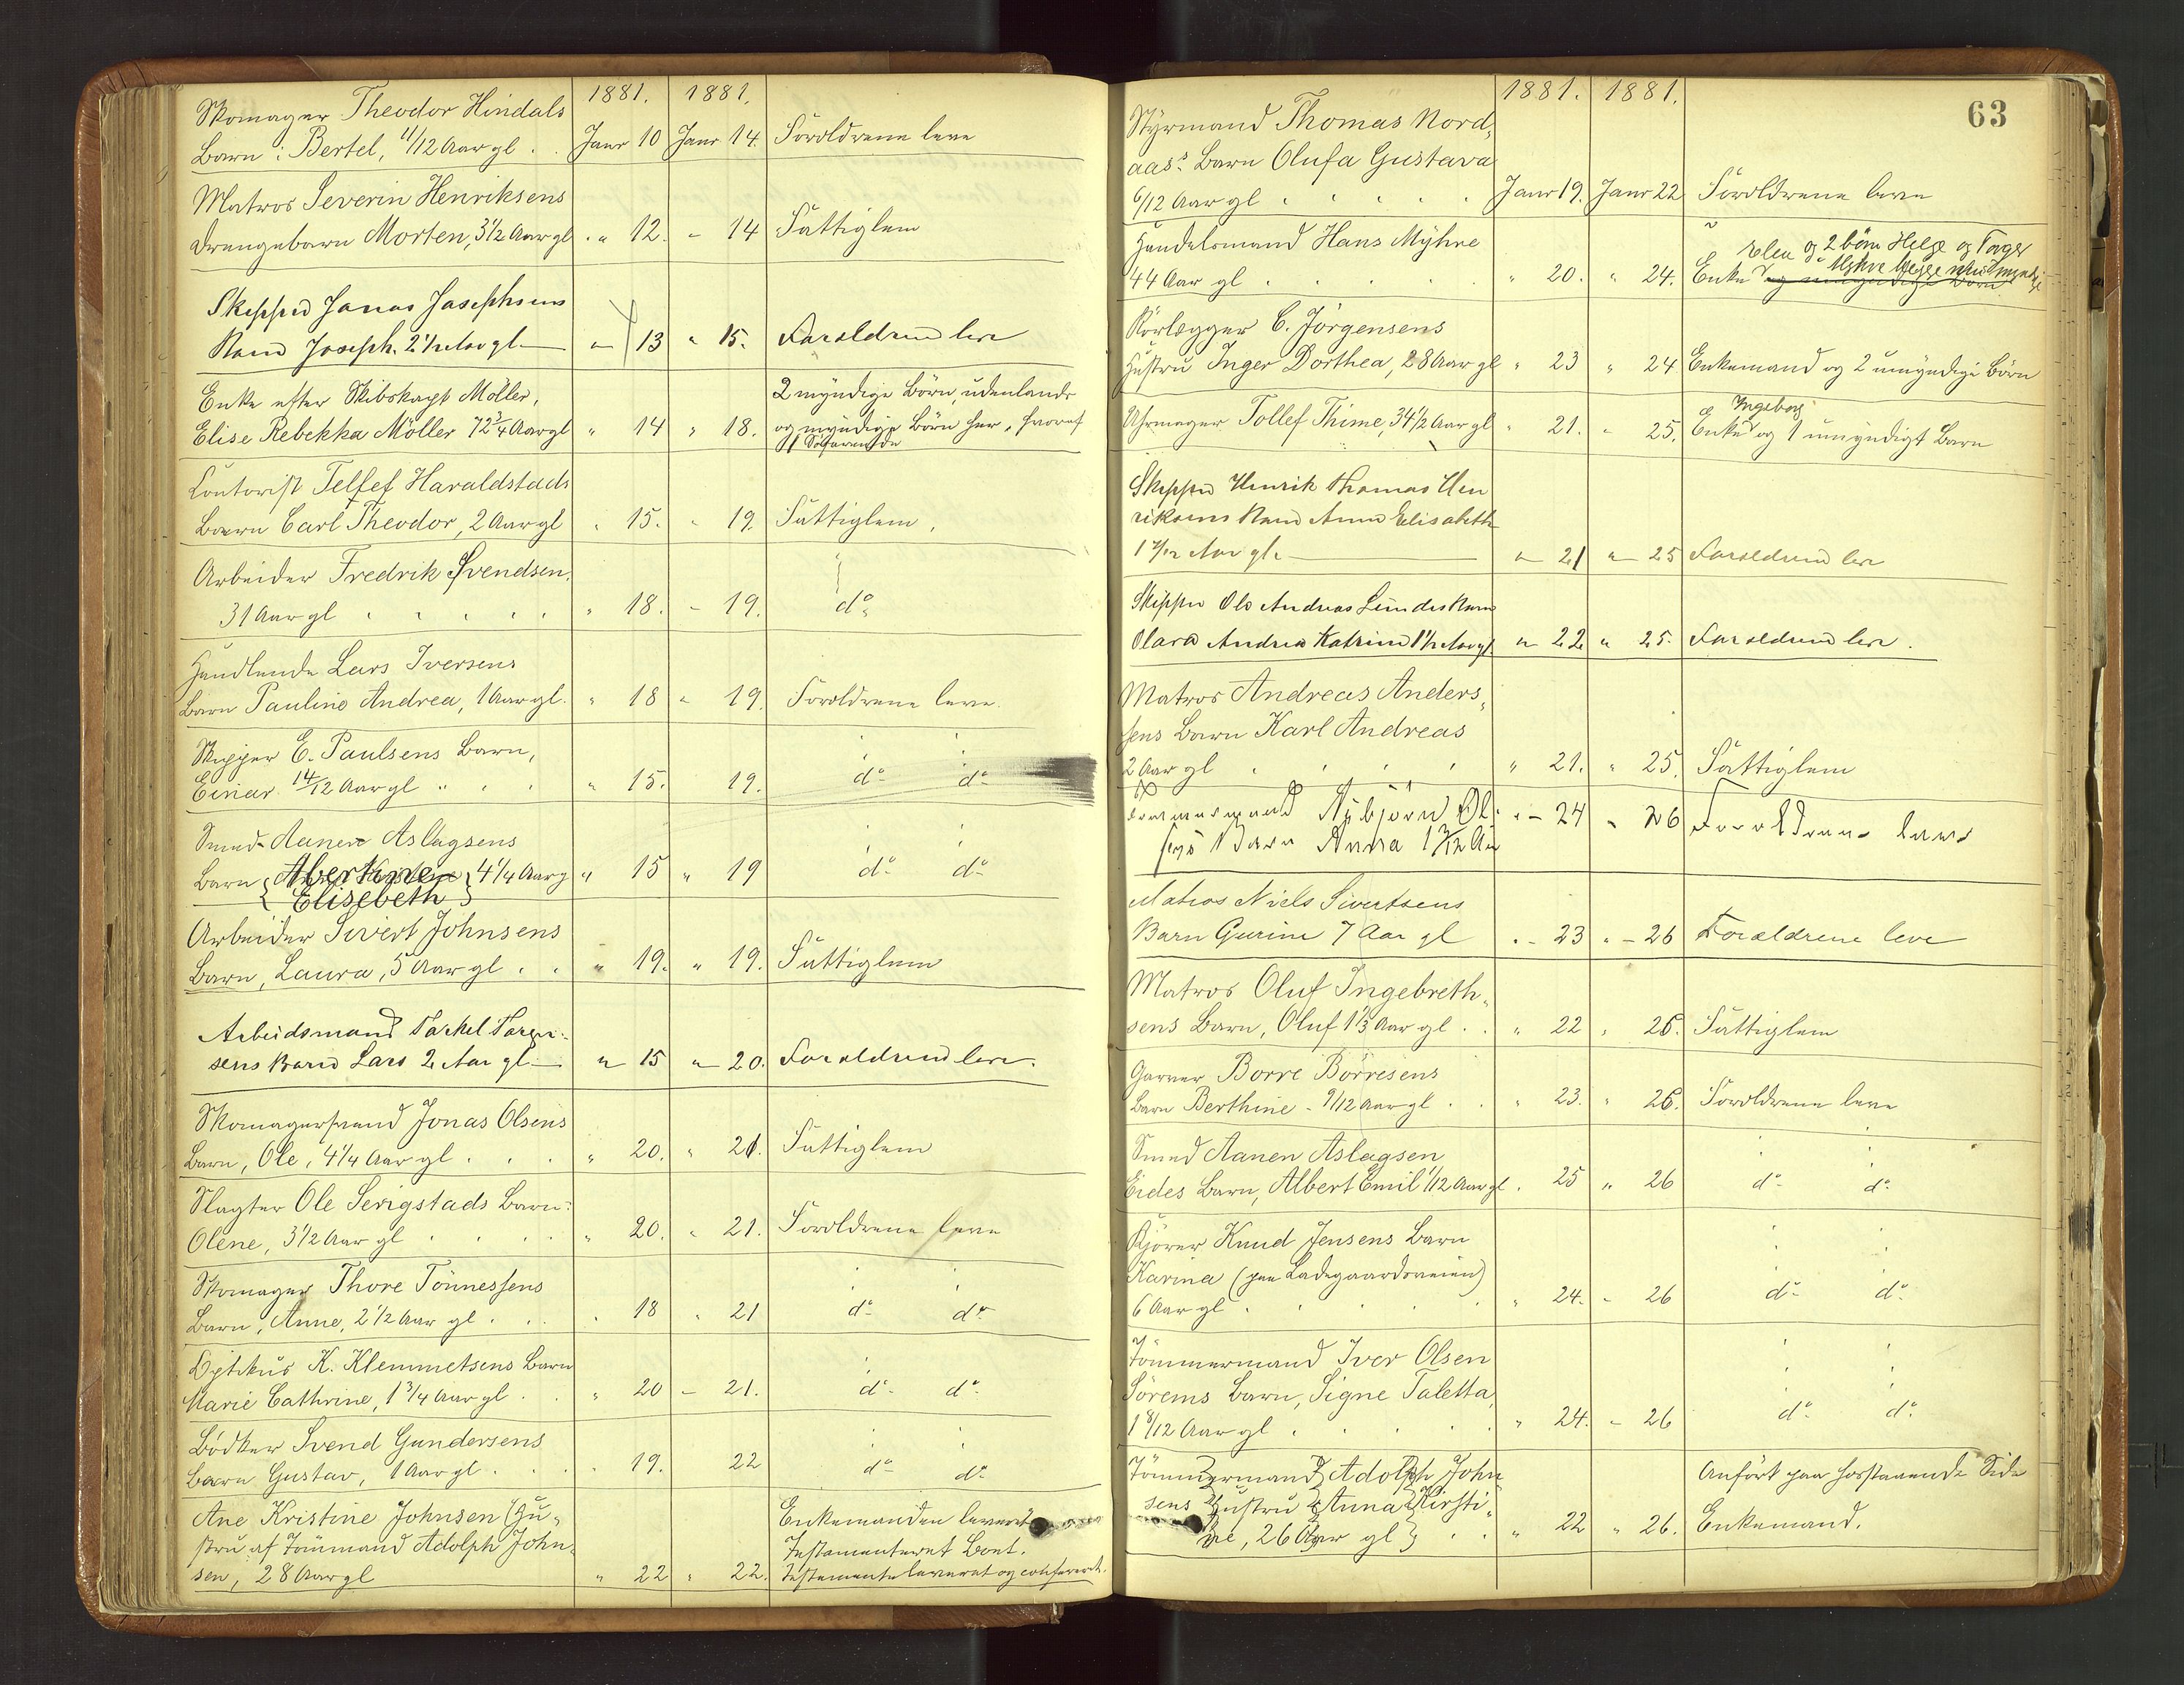 1881. 1881.
Skomager Theodor Hindals
Barn: Bertel, 11/12 Aar gl. Janr 10 Janr 14. Forældrene leve
Matros Severin Henriksens
Drengebarn Morten, 3 1/2 Aar gl. " 12. " 14 Fattiglem
Skipper Jonas Josephsens
Barn Joseph. 2 1/2 Aar gl. " 13 " 15. Forældrene leve
Enke efter Skibskapt Möller, 2 myndige Börn, udenlands
Elise Rebekka Möller 72 3/4 Aar gl " 14 " 18. og myndige Börn her, hvoraf
1 Söfarende
Contorist Tellef Haraldstads
Barn Carl Theodor, 2 Aar gl " 15. " 19 Fattiglem.
Arbeider Fredrik Svendsen,
31 Aar gl " 18. " 19. do
Handlende Lars Iversens
Barn Pauline Andrea, 1 Aar gl. " 18 " 19. Forældrene leve.
Skipper E. Paulsens Barn,
Einar 14/12 Aar gl " 15. 19. do do
Smed Aanen Aslagsens
Barn Abertine 4 1/4 Aar g " 15 " 19 do do
Elisebeth
Arbeider Sivert Johnsens
Barn, Laura, 5 Aar gl. " 19. " 19. Fattiglem
Arbeidsmand Torkel Torger-
sens Barn Lars 2 Aar gl. " 15 " 20. Forældrene leve.
Skomagersvend Jonas Olsens
Barn, Ole, 4 1/4 Aar gl. " 20. " 21. Fattiglem
Slagter Ole Serigstads Barn:
Olene, 3 1/2 Aar gl " 20. " 21. Forældrene leve
Skomager Thore Tönnessens
Barn, Anne, 2 1/2 Aar gl. " 18 " 21 do do
K. Klemmetsens Barn
Marie Cathrine, 1 3/4 Aar gl. " 20 " 21. do do
Bödker Svend Gundersens
Barn Gustav, 1 Aar gl. " 19. 22 do do
Ane Kristine Johnsen (Hu- Enkemanden leverer
stru af Tömmand Adolph John- Testamenteret Boet.
sen, 28 Aar gl " 22 " 22. Testamente leveret og confereret.
63
1881. 1881.
Styrmand Thomas Nord-
aas's Barn Olufa Gustava
6/12 Aar gl Janr 19. Janr 22 Forældrene leve
Handelsmand Hans Myhre Elen og 2 börn Helge og Torger
44 Aar gl " 20. " 24. Enke
Rörlægger C. Jörgensens
Hustru Inger Dorthea, 28 Aar gl " 23 " 24 Enkemand og 2 umyndige Börn
Ingeborg
Uhrmager Tollef Thime, 34 1/2 Aar gl " 21. " 25. Enke og 1 umyndigt Barn
Skipper Henrik Thomas Hen
riksens Barn Anna Elisabeth
1 7/12 Aar gl. " 21 " 25 Forældrene leve
Skipper Ole Andreas Lundes Barn
Olara Andrea Katrine 1 1/2 Aar gl " 22 " 25. Forældrene leve.
Matros Andreas Anders-
sens Barn Karl Andreas
2 Aar gl " 21. " 25. Fattiglem
Tömmermand Ol-
sens Barn Anna 1 3/12 Aar " 24 " 26 Forældrene leve
Matros Niels Sivertsens
Barn Gurine 7 Aar gl " 23 " 26 Forældrene leve
Matros Oluf Ingebreth-
sens Barn, Oluf 1 1/3 Aar gl. " 22 " 26. Fattiglem
Garver Borre Börresens
Barn Berthine 9/12 Aar gl. " 23. " 26. Forældrene leve
Smed Aanen Aslagsen
Eides Barn, Albert Emil 1/12 Aar gl. 25 " 26 do do
Kjörer Knud Jensens Barn
Karina (paa Ladegaardsveien)
6 Aar gl. " 24. " 26 do do
Tömmermand Iver Olsen
Sörems Barn, Signe Taletta,
1 8/12 Aar gl. " 24. " 26 do do
Tömmermand Adolph John Anfört paa hosstaaende Side
sens Hustru Anna Kirsti-
ne, 26 Aar gl " 22 " 26. Enkemand.